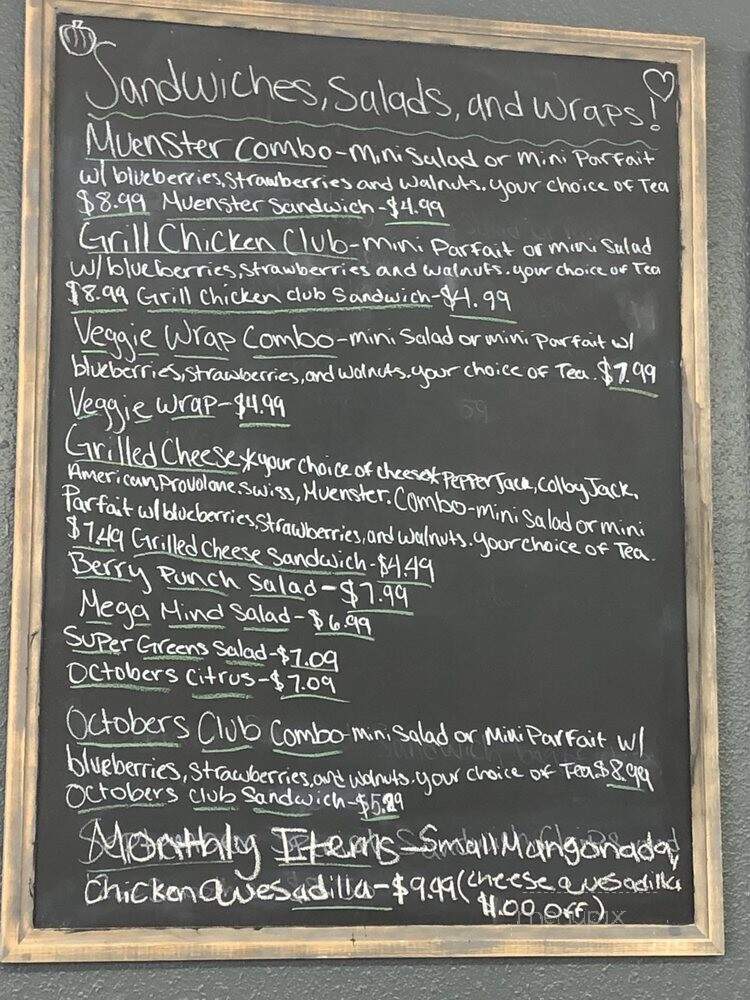 Sandwiches, Salads, and Wraps!
Muenster Combo-Mini Salad or Mini Parfait
w/ blueberries, Strawberries and Walnuts. your choice of Tea
$8.99 Muenster Sandwich-$4.99
Grill Chicken Club-mini Parfait or mini Salad
w/ blueberries, Strawberries and walnuts. your choice of Tea
$8.99 Grill Chicken club Sandwich-$4.99
Veggie Wrap Combo-mini Salad or mini Parfait w/
blueberries, Strawberries, and walnuts. your choice of Tea. $7.99
Veggie Wrap-$4.99
Grilled Cheese *your choice of cheese* Pepper Jack, Colby Jack,
American, Provolone, Swiss, Muenster. Combo-mini Salad or mini
Parfait w/ blueberries, Strawberries, and walnuts. your choice of Tea.
$7.49 Grilled Cheese Sandwich-$4.49
Berry Punch Salad-$7.99
Mega Mind Salad-$6.99
Super Greens Salad-$7.09
Octobers Citrus-$7.09
Octobers Club Combo-mini Salad or Mini Parfait w/
blueberries, Strawberries, and walnuts. your choice of Tea $8.99
Octobers club Sandwich-$5.29
Monthly Items-Small Mangonada,
Chicken Quesadilla-$9.99 (cheese quesadilla
$1.00 off)
menupix